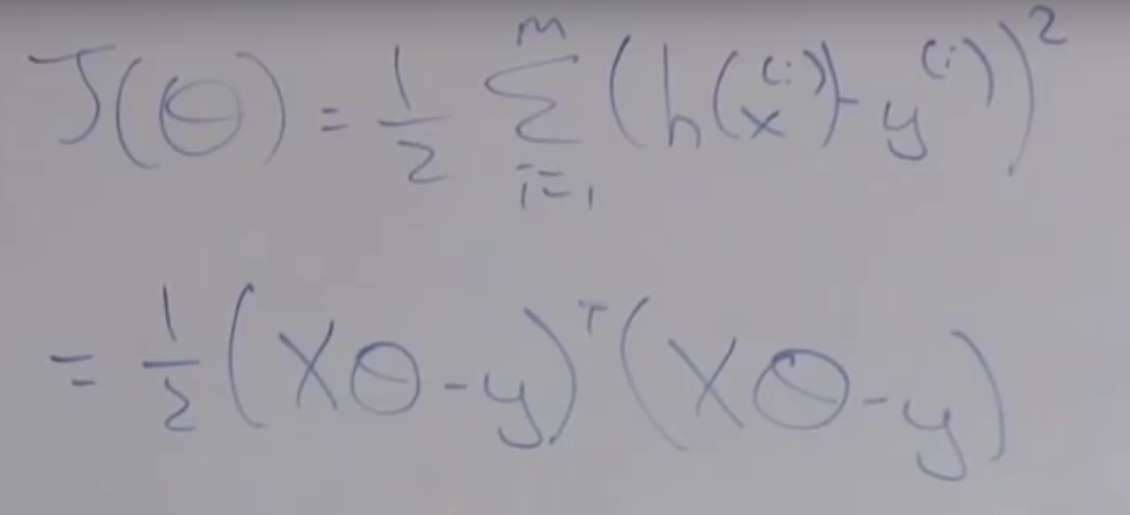 J(Θ) = 1/2 Σ_{i=1}^{m} (h(x^{(i)}) - y^{(i)})^2
= 1/2 (XΘ - y)^T (XΘ - y)